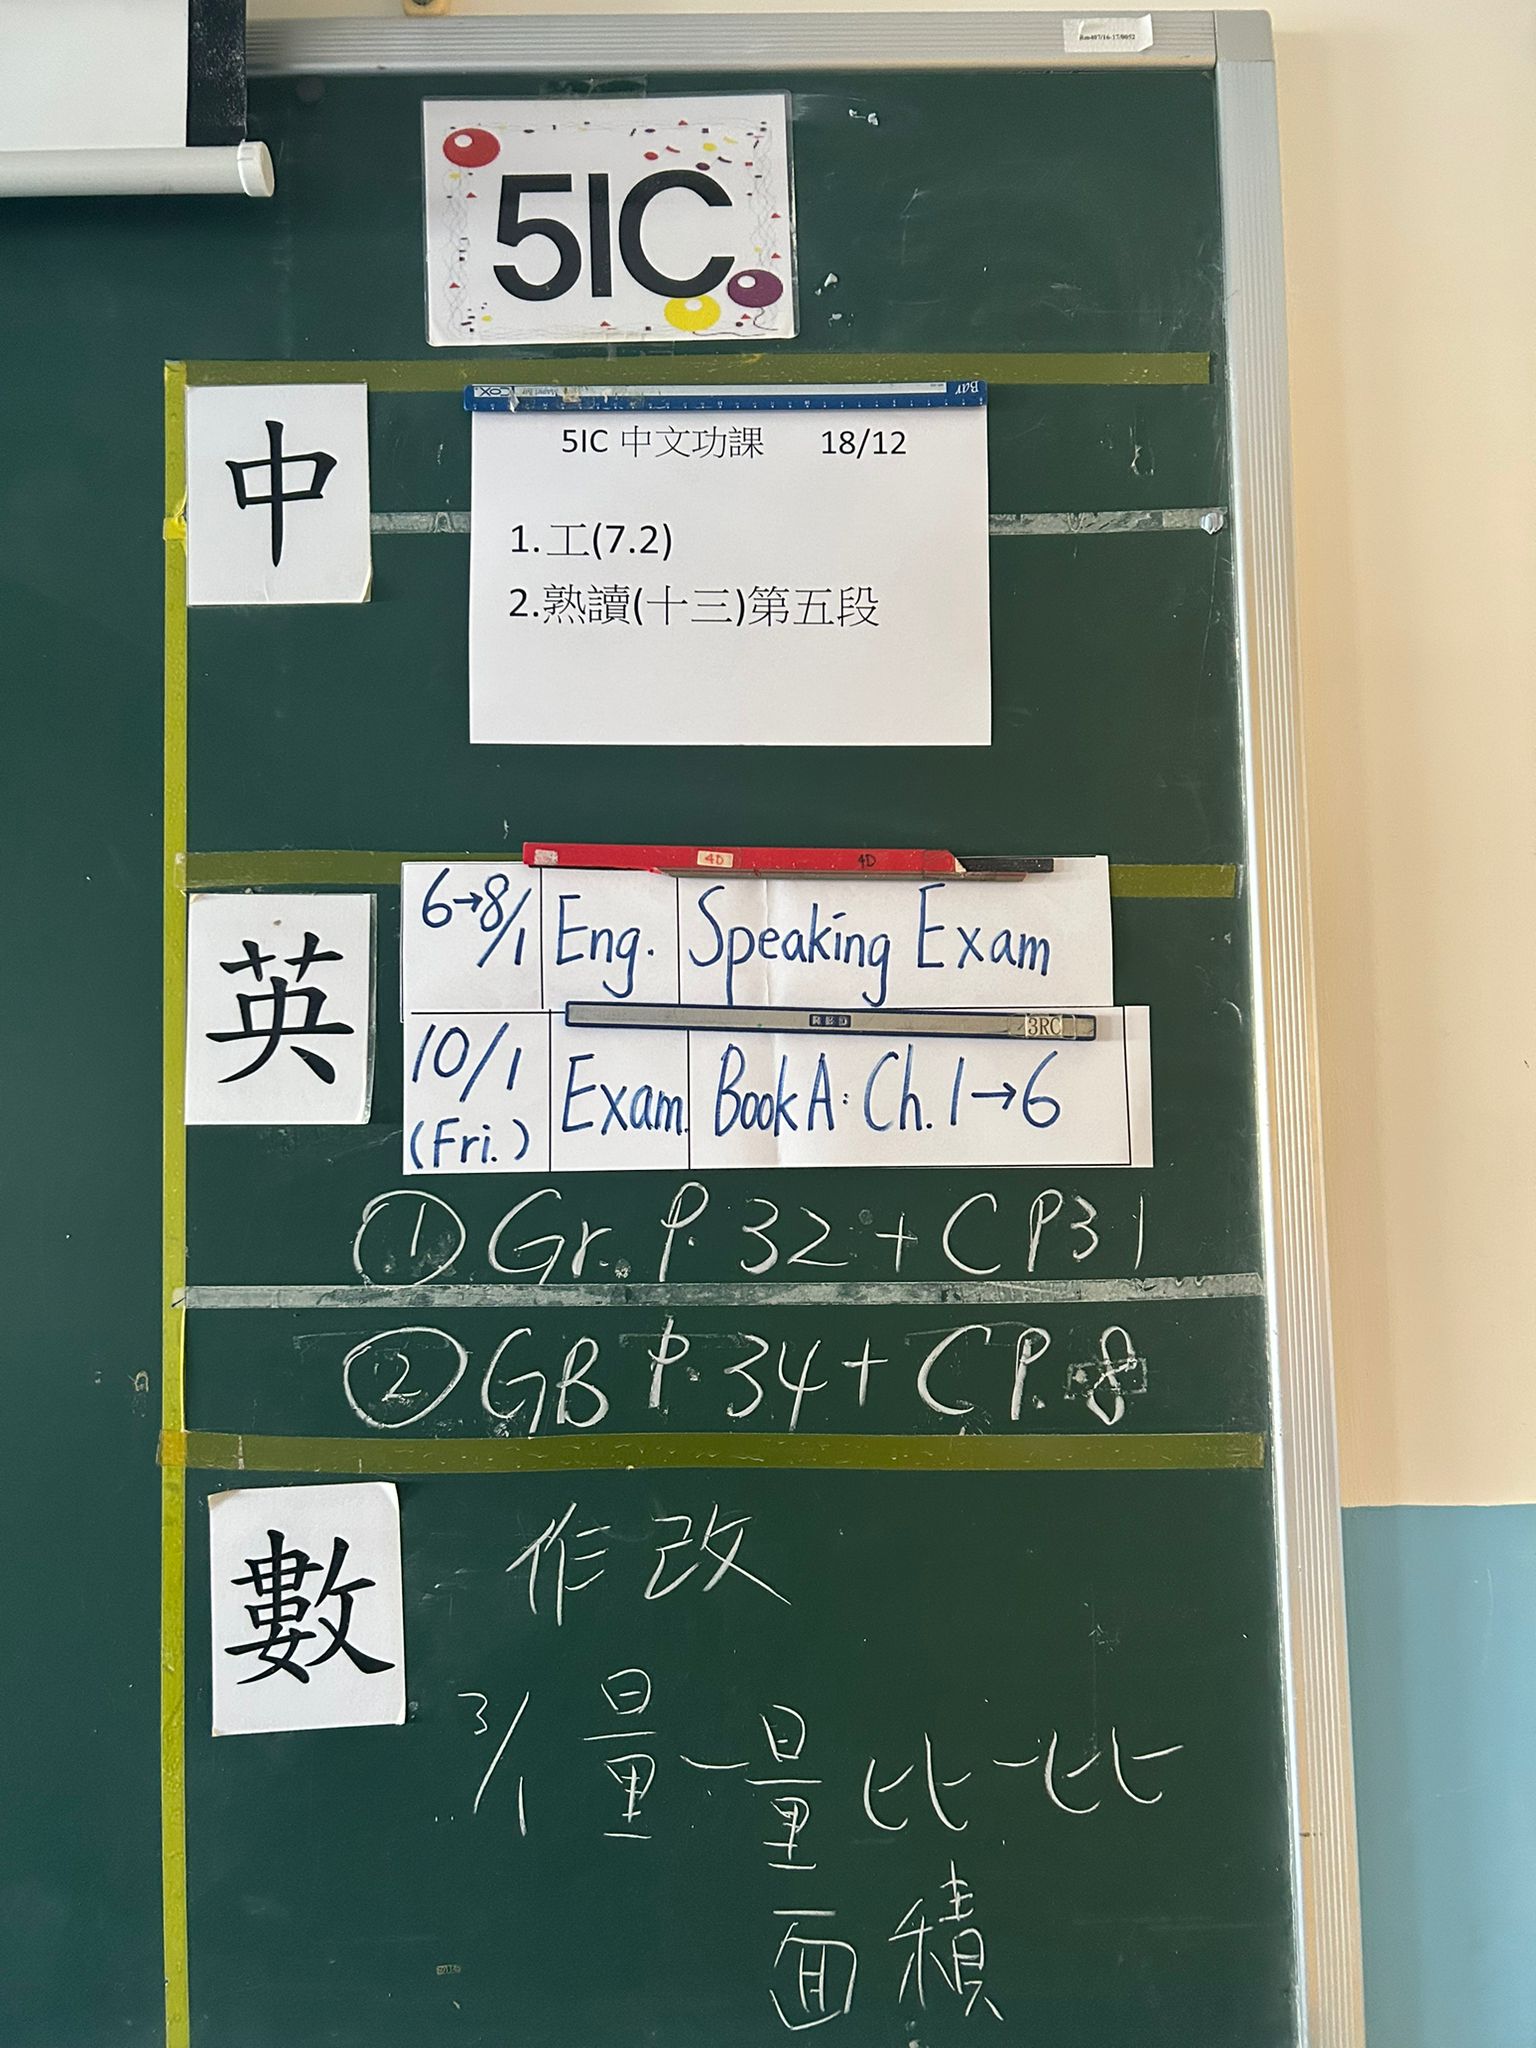 Rm407/16-17/0052
5IC
中
5IC 中文功課 18/12
1.工(7.2)
2.熟讀(十三)第五段
英
4D 4D
6→8/1 Eng. Speaking Exam
RED 3RC
10/1 (Fri.) Exam. Book A: Ch. 1→6
① Gr. P. 32 + C P31
② GB P. 34 + C P. 8
數
作改
3/1 量一量比一比
面積